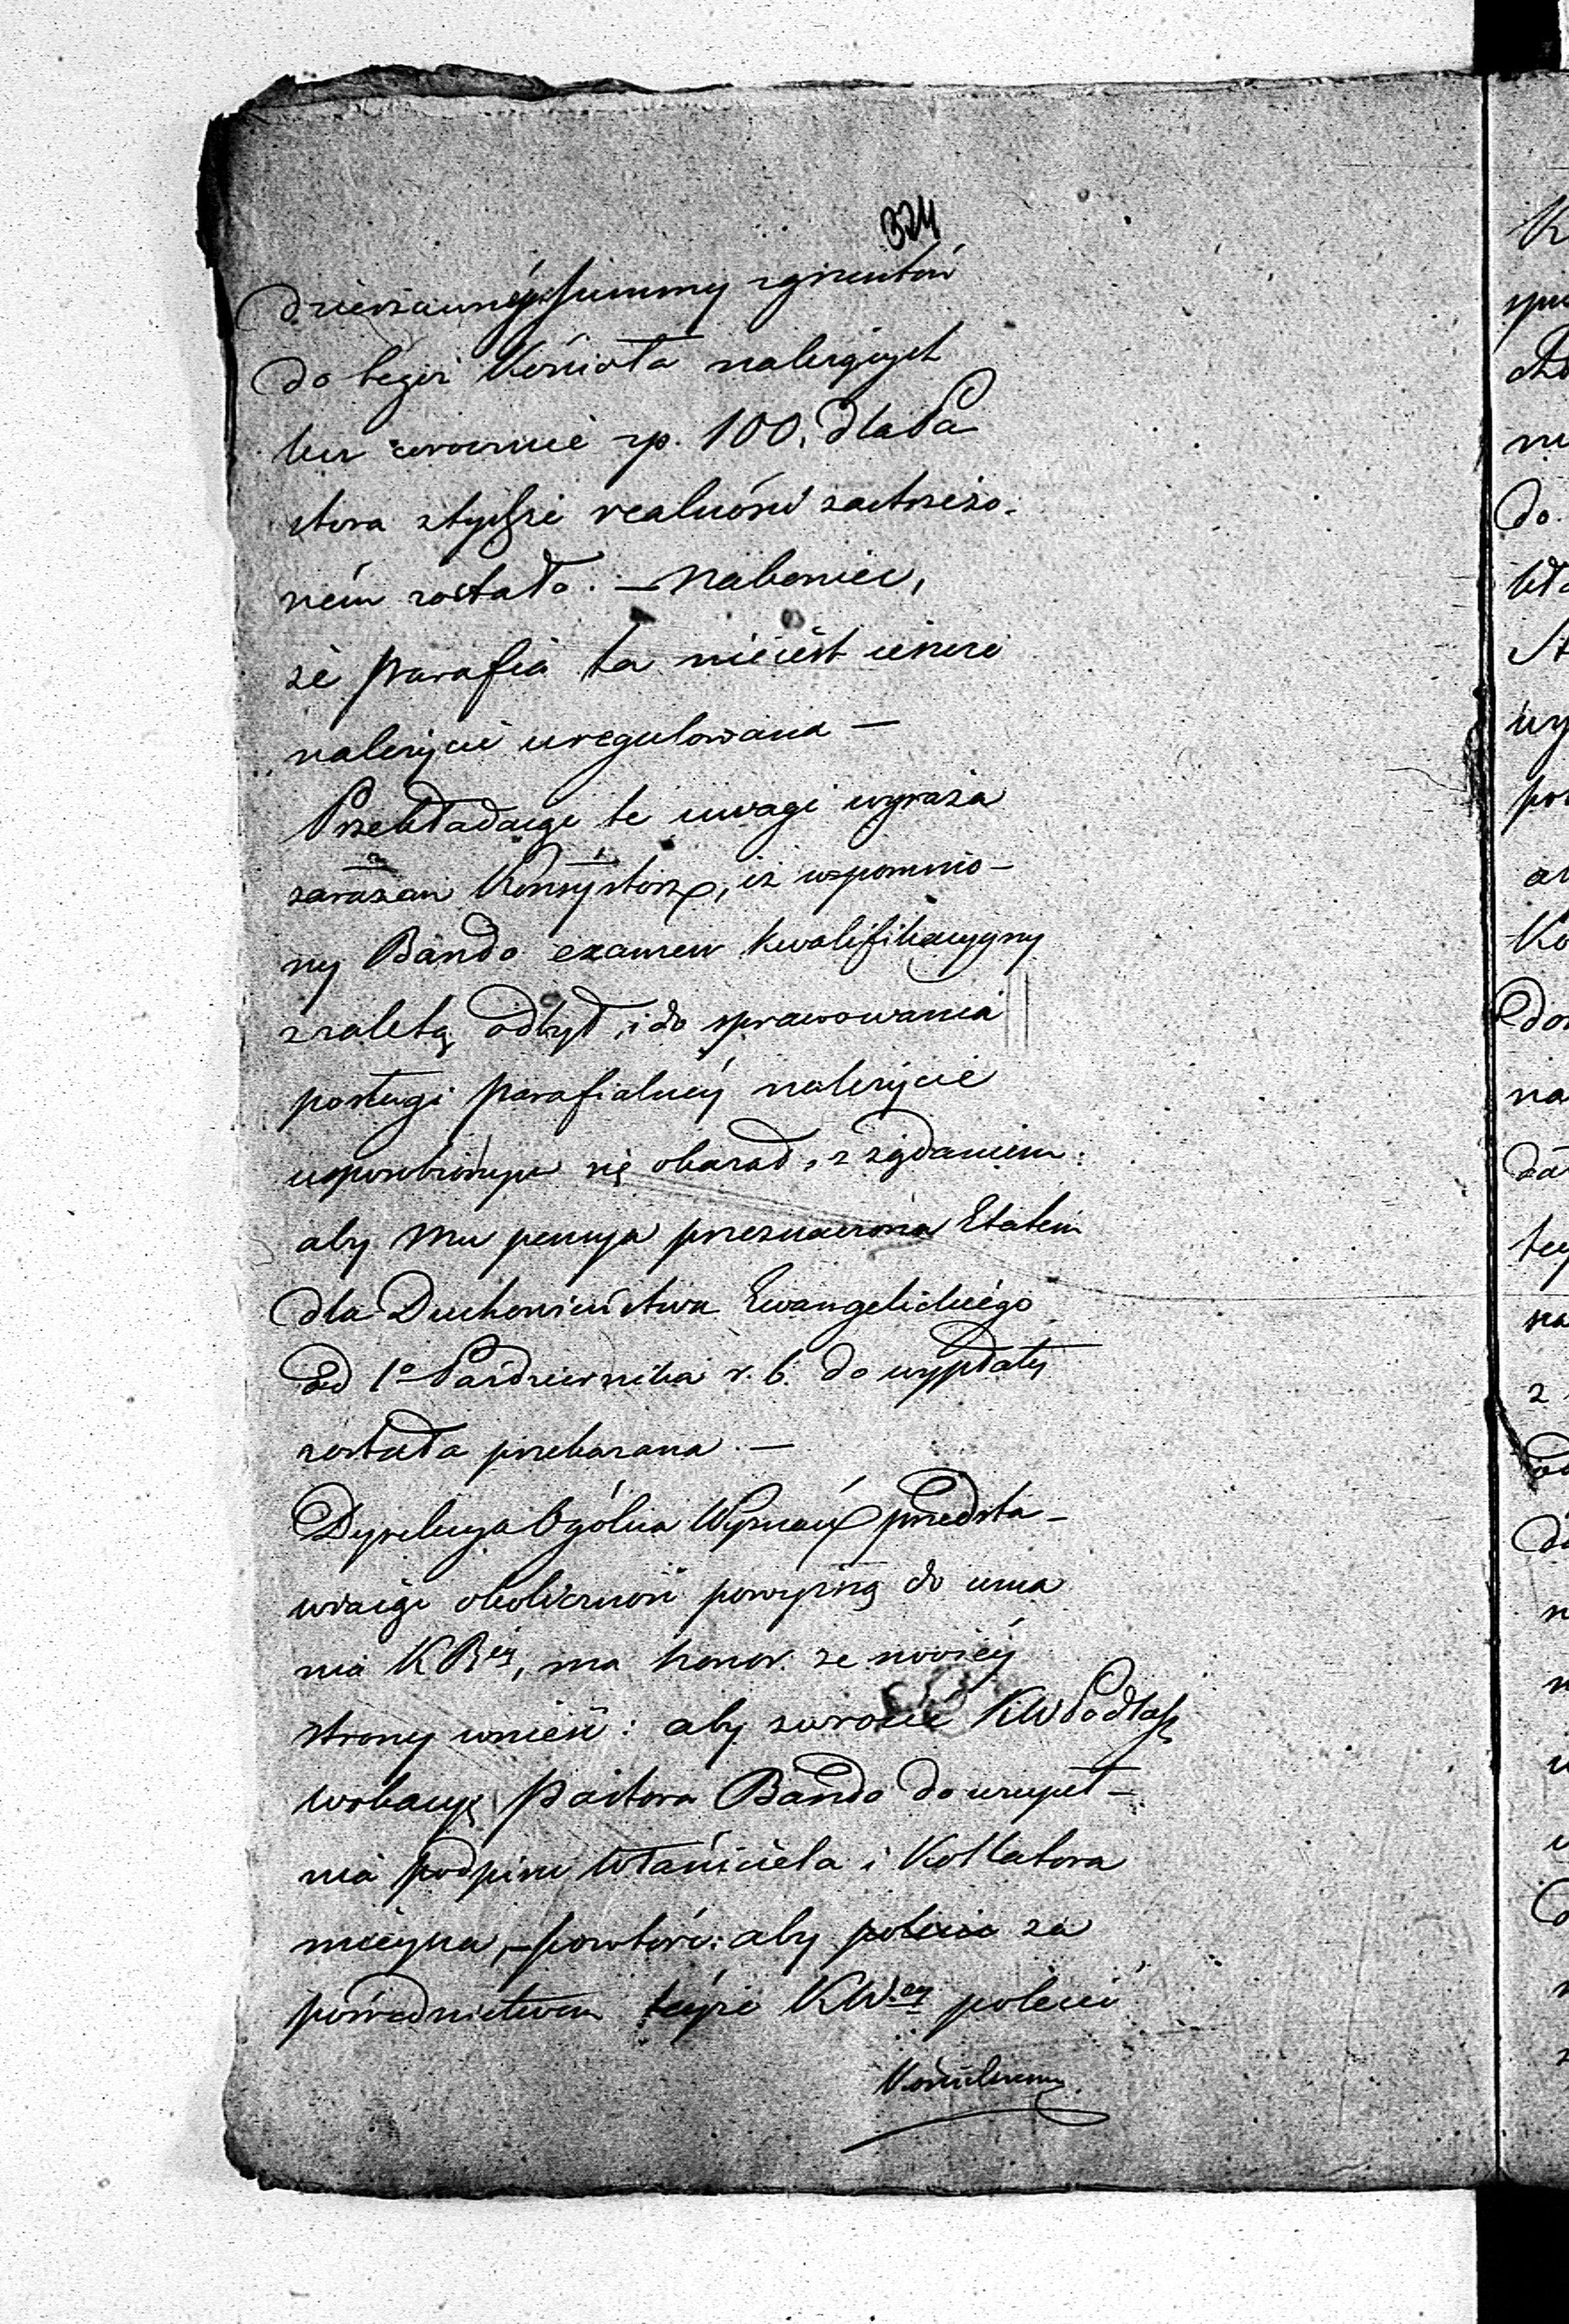 324
dzierżawnéy summy z gruntów
do tegoż Kościoła należących
lecz corocznie zp. 100. dla Pa
stora z tychże realności zastrzeżo-
ném zostało. — Nakoniec,
że Parafia ta nie iest ieszcze
należycie uregulowana —
Przekładaiąc te uwagi wyraża
zarazem Konsystorz, iż wspomnio-
ny Bando examen kwalifikacyyny
z zaletą odbył, i do sprawowania
posługi Parafialnéy należycie
usposobionym się okazał, z żądaniem:
aby mu pensya przeznaczona Etatem
dla Duchowieństwa Ewangelickiégo
od 1o Października r. b. do wypłaty
została przekazana. —
Dyrekcya Ogólna Wyznań przedsta-
wiaiąc okoliczność powyższą do uzna
nia KRéy, ma honor. ze swoiéy
strony wnieść: aby zwrócić KWPodlas
wokacyę Pastora Bando do uzupeł-
nia podpisu Właściciela i Kollatora
mieysca, — powtóre: aby za
pośrednictwem teyże KW.éy polecić